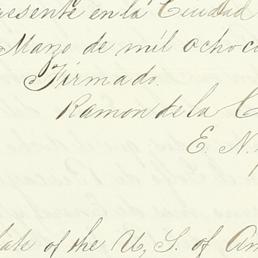 presente en la Ciudad
Marzo de mil ochoci
Firmado.
Ramon de la C
E. N.
of the U. S. of Am